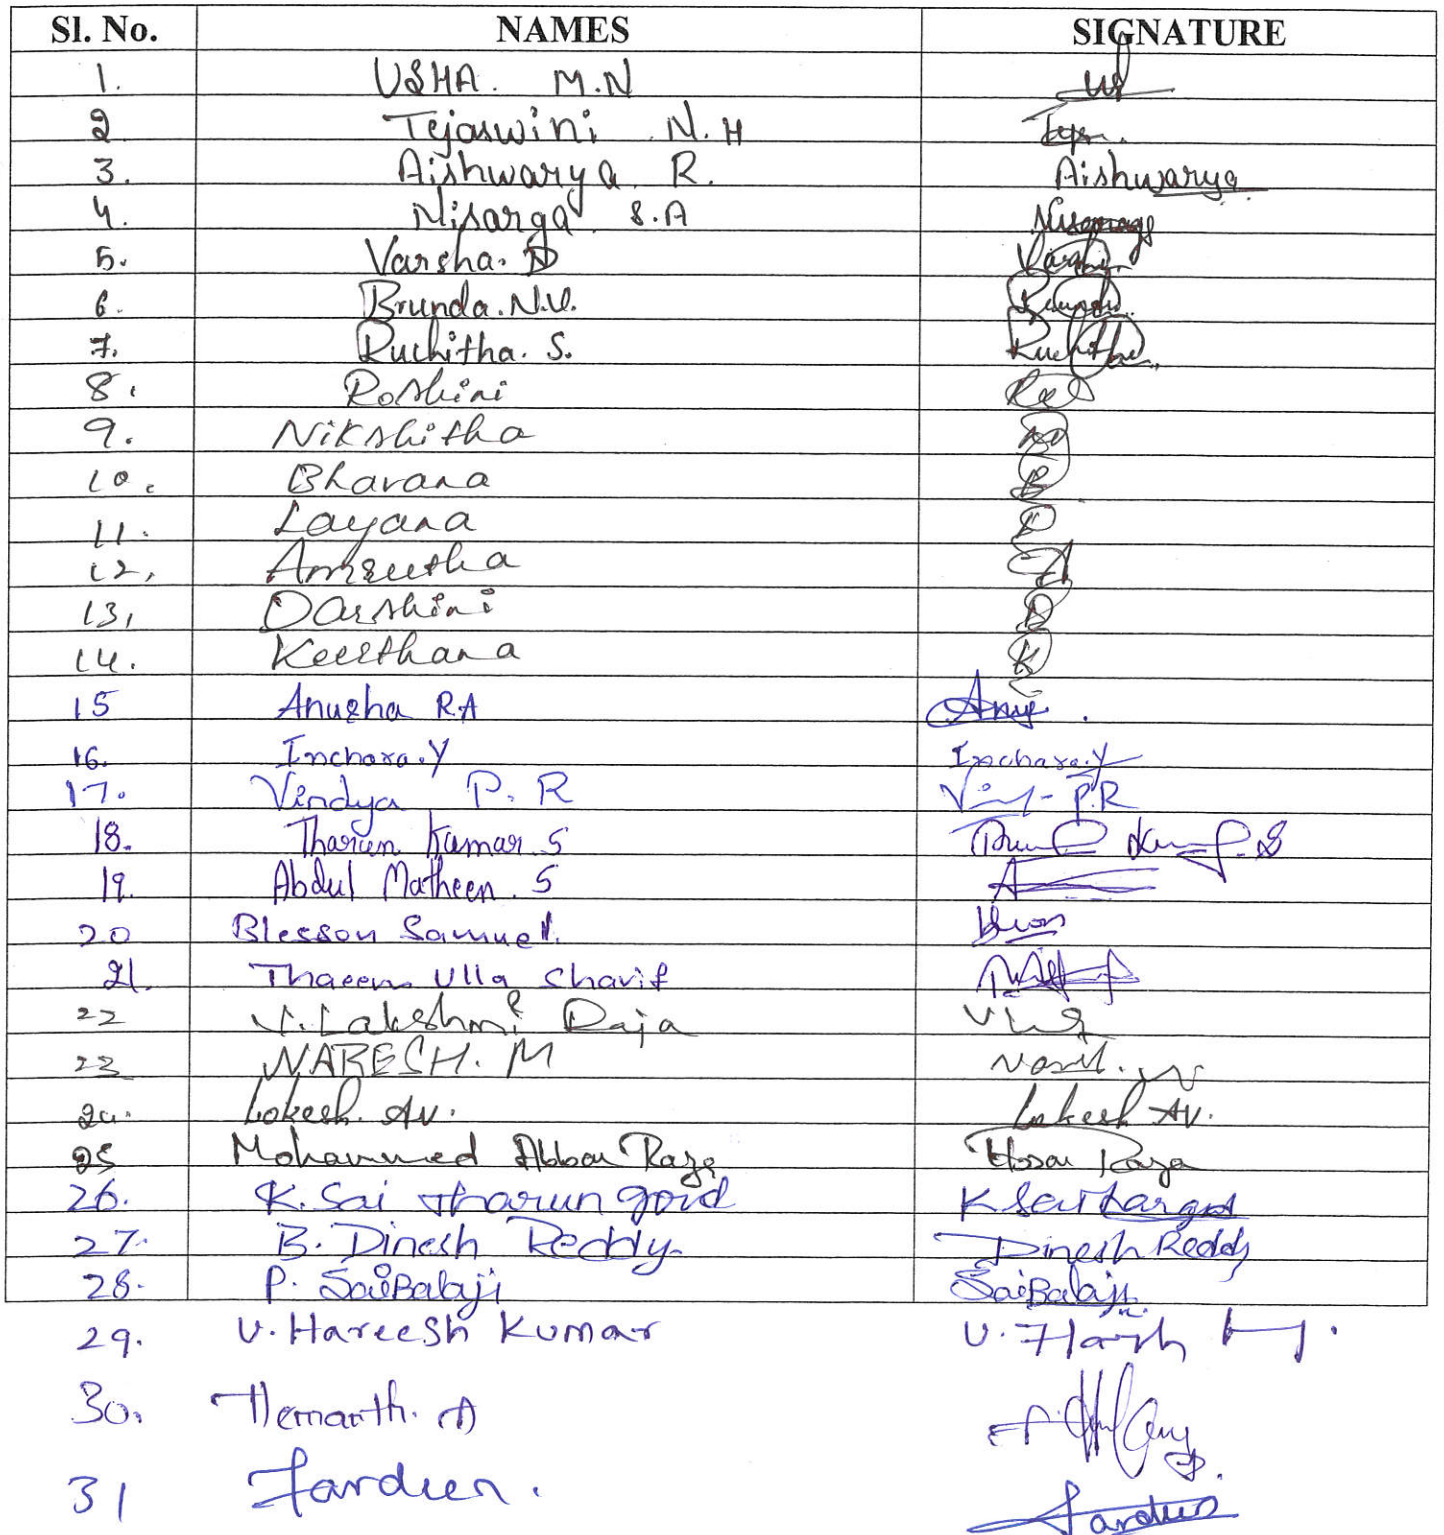 Sl. No. NAMES SIGNATURE
1. USHA. M.N
2 Tejaswini N.H
3. Aishwarya R. Aishwarya
4. Nisarga S.A
5. Varsha. D
6. Brunda. N.V.
7. Ruchitha. S. Ruchitha
8. Roshini
9. Nikshitha
10. Bhavana B
11. Layana
12, Amrutha A
13, Darshini D
14. Keerthana K
15 Anusha R.A
16. Inchara.Y Inchara.Y
17. Vindya P. R P.R
18. Tharun Kumar. S
19. Abdul Matheen. S A
20 Blesson Samuel.
21. Thaseen Ulla Sharif
22 V. Lakshmi Raja
23 NARESH. M
24. Lokesh. AV. Lokesh AV.
25 Mohammed Abbas Raza Raza
26. K. Sai Tharun goud
27. B. Dinesh Reddy. Dinesh Reddy
28. P. SaiBalaji SaiBalaji
29. V. Hareesh Kumar
30. Hemanth. A
31 Fardeen. Fardeen